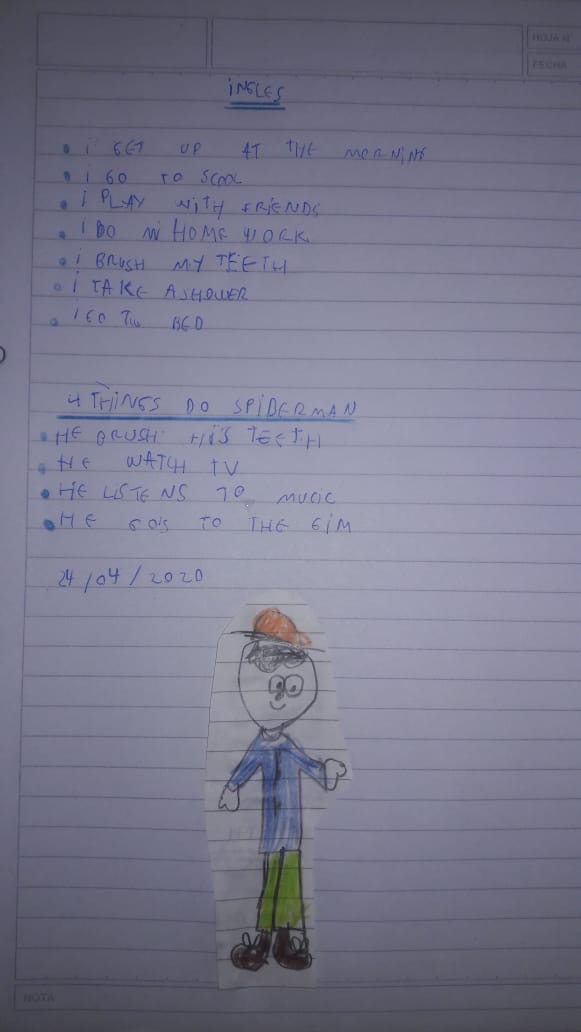 HOJA N°
FECHA
iNGLES
i GET UP AT THE MORNiNG
i GO TO SCOOL
i PLAY WiTH FRiENDS
i DO Mi HOME WORK
i BRUSH MY TEETH
i TAKE A SHOWER
i GO To BED
4 THiNGS DO SPiDERMAN
HE BRUSH HiS TEETH
HE WATCH TV
HE LiSTENS TO MUCiC
HE GOiS TO THE GiM
24/04/2020
NOTA